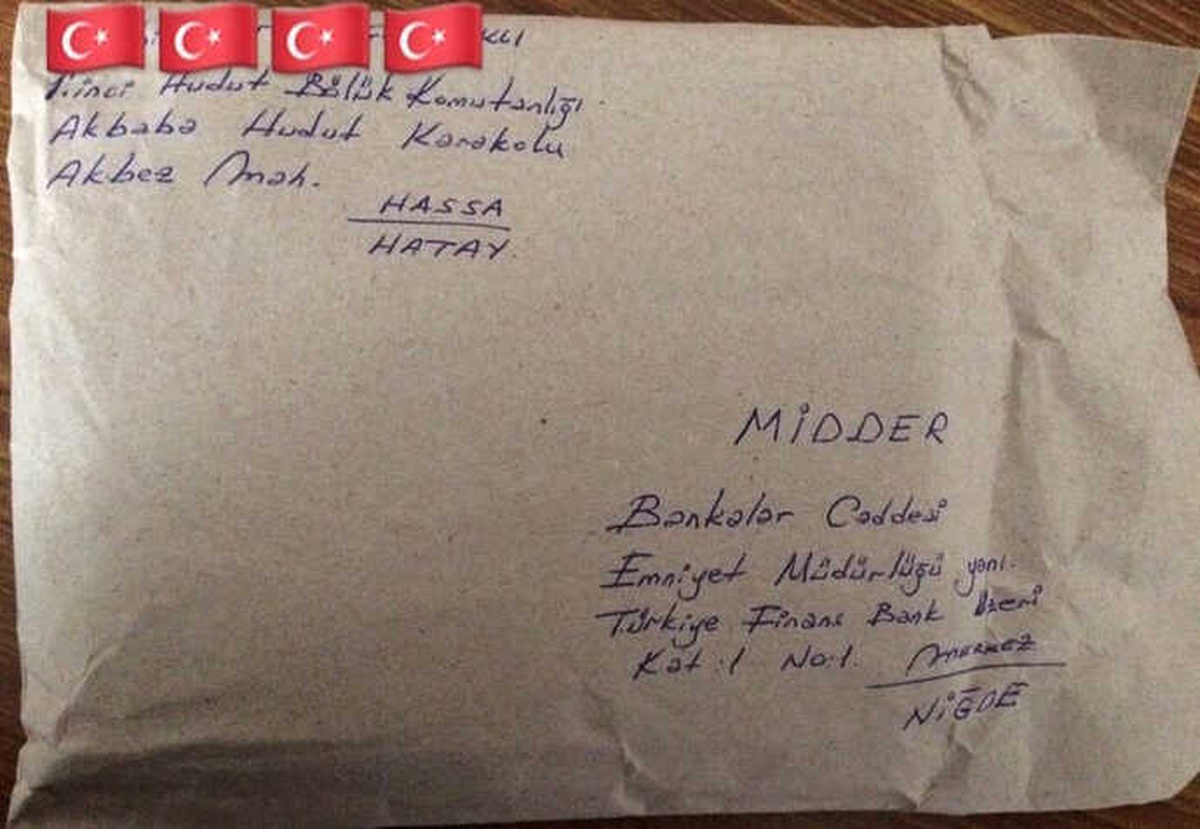 Hudut Bölük Komutanlığı
Akbaba Hudut Karakolu
Akbez Mah.
HASSA
HATAY.
MİDDER
Bankalar Caddesi
Emniyet Müdürlüğü yanı.
Türkiye Finans Bank üzeri
Kat:1 No:1. MERKEZ
NİĞDE